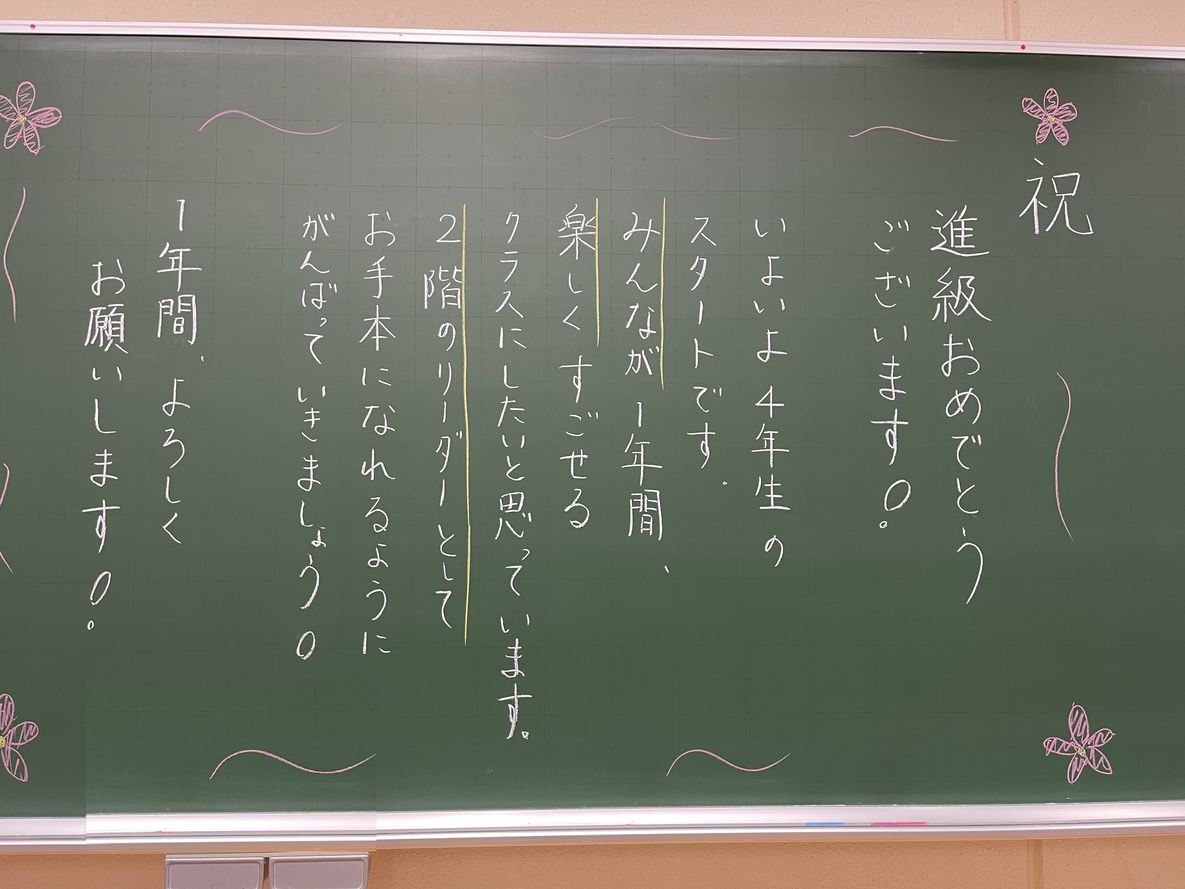 祝
進級おめでとう
ございます!
いよいよ4年生の
スタートです。
みんなが1年間、
楽しくすごせる
クラスにしたいと思っています。
2階のリーダーとして
お手本になれるように
がんばっていきましょう!
1年間、よろしく
お願いします!